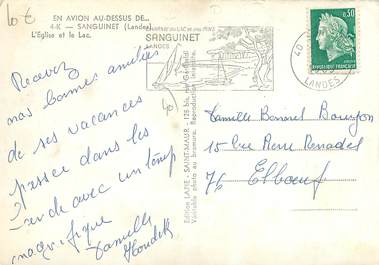 10 €
EN AVION AU-DESSUS DE...
4-K — SANGUINET (Landes)
L'Eglise et le Lac.
SANGUINET
LANDES
0,30
RÉPUBLIQUE FRANÇAISE
40
LANDES
Recevez
nos bonnes amitiés
de ses vacances
passer dans les
Landes avec un temp
magnifique
Famille
Edition LAPIE - SAINT-MAUR - 125 bis, rue Garibaldi
Véritable photo au bromure. Reproduction interdite
Famille Bonnet
15 rue Pierre Renadel
76 Elboeuf